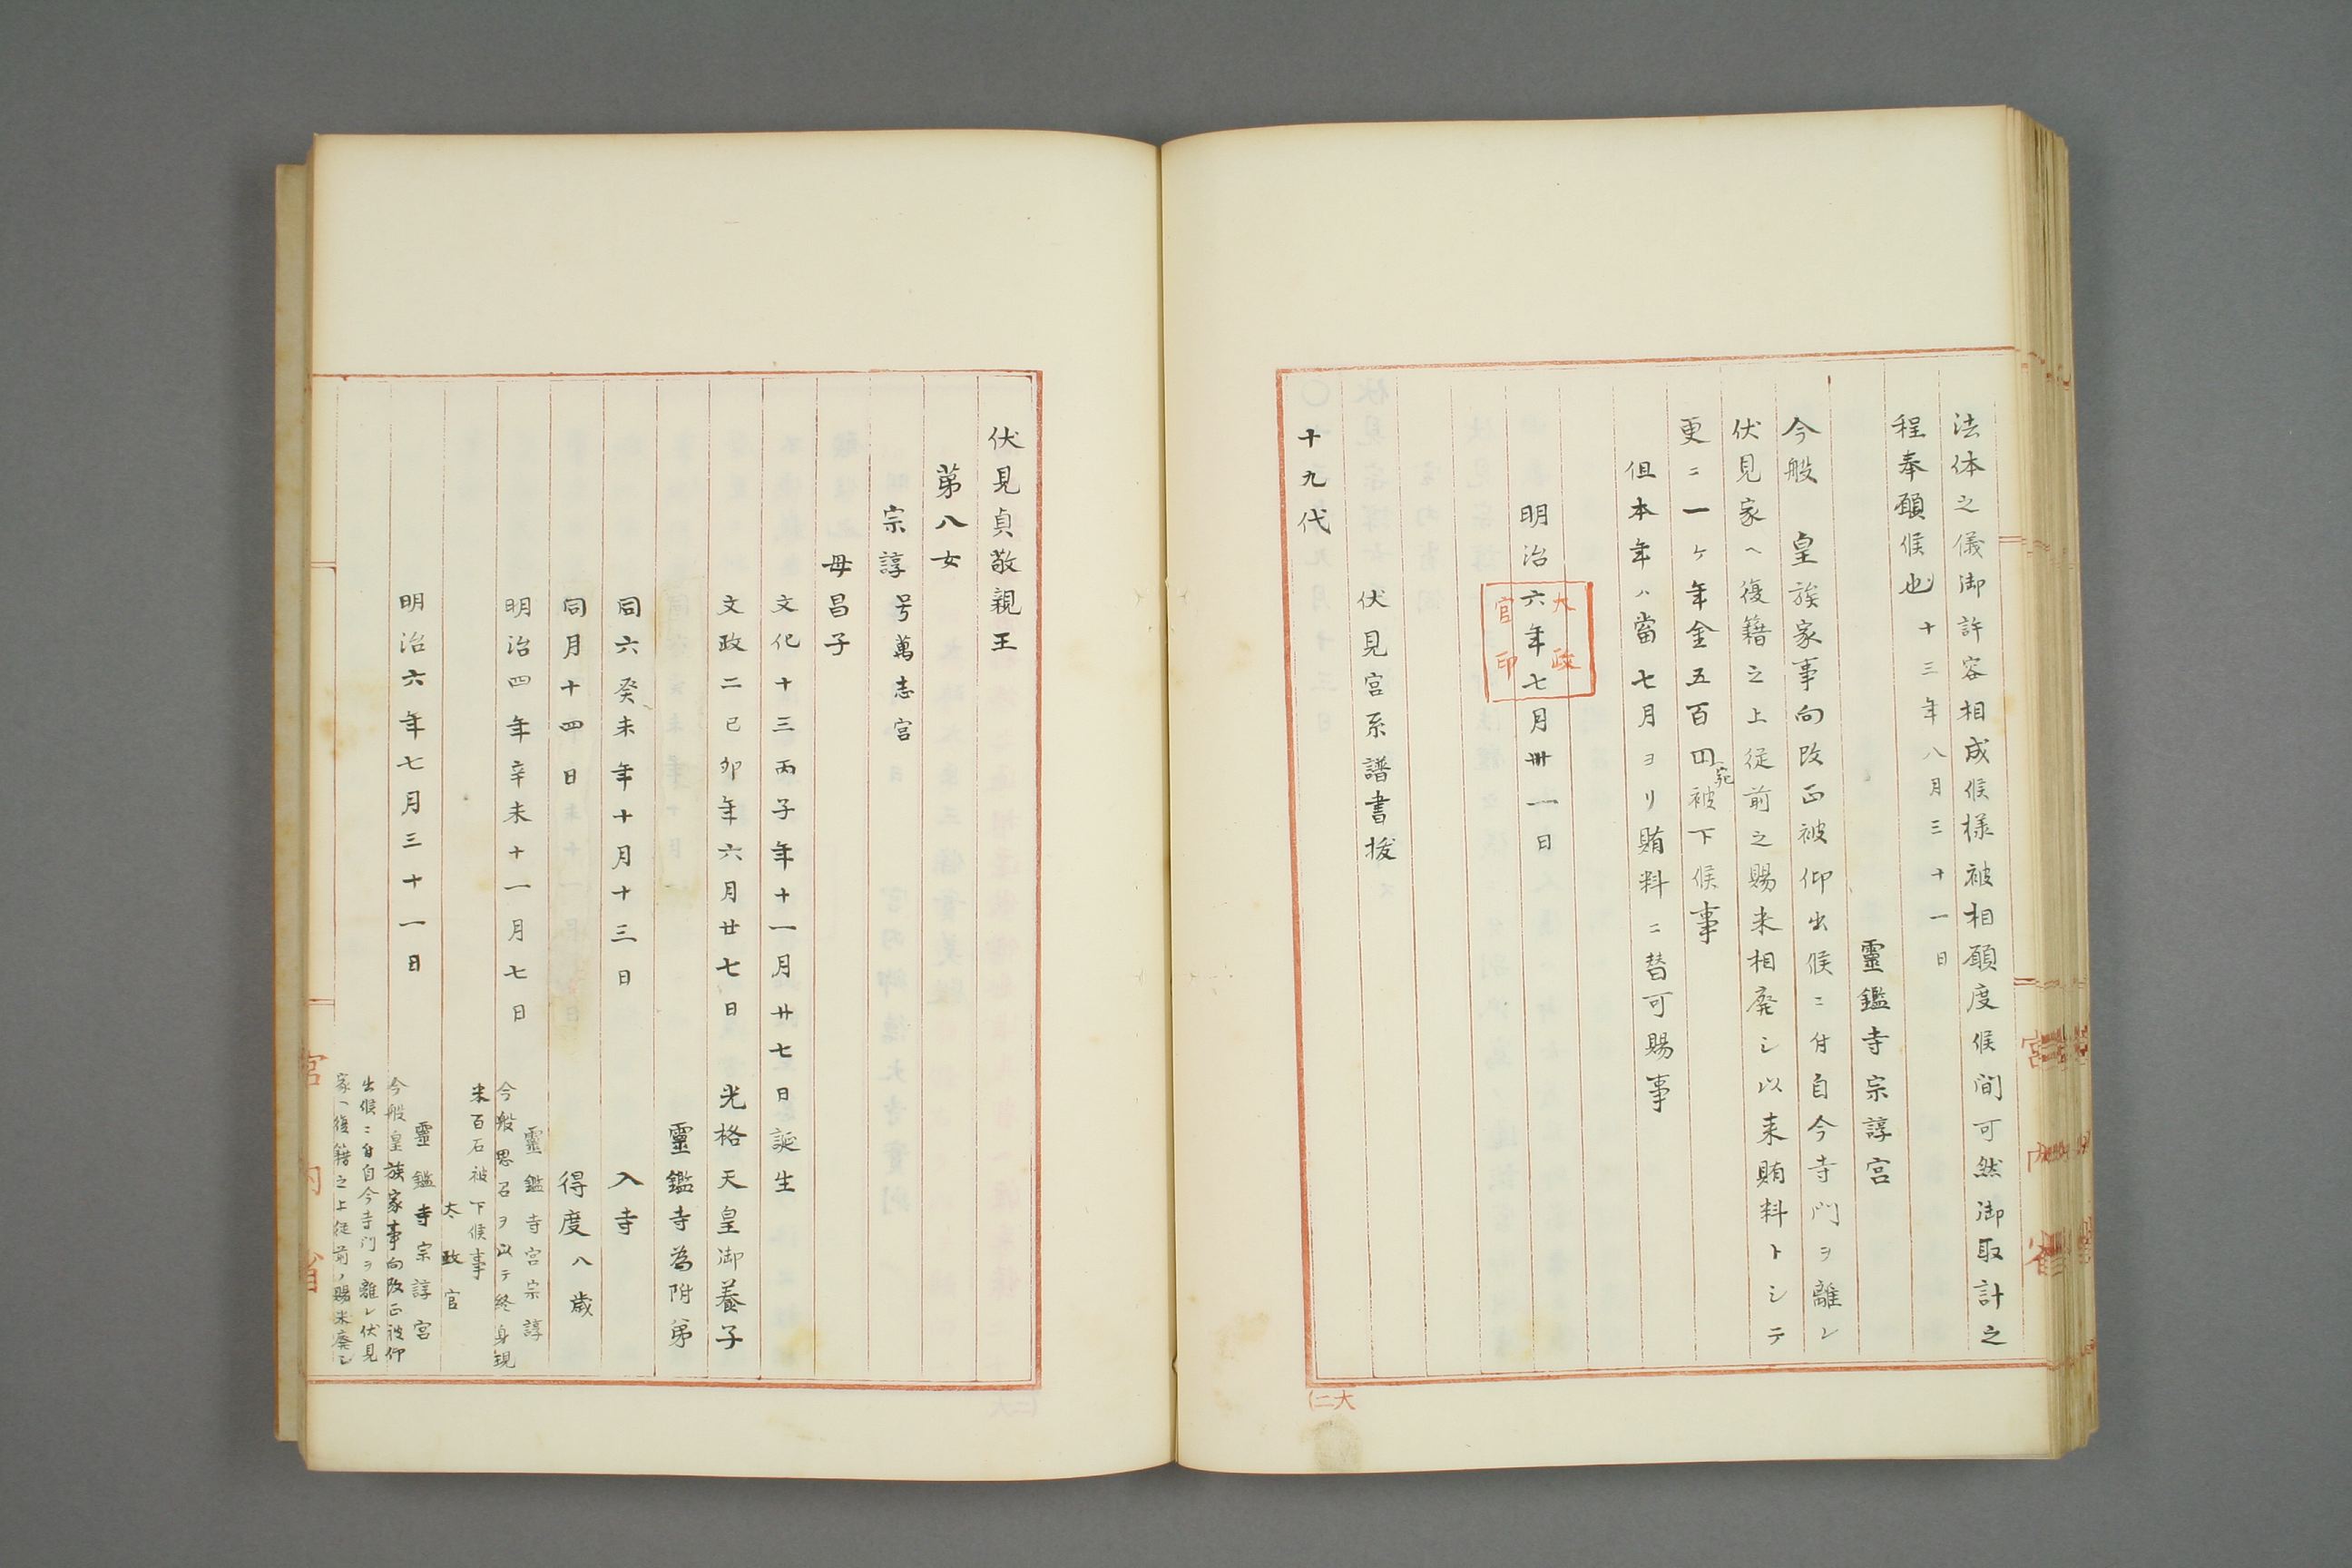 法体之儀御許容相成候様被相願度候間可然御取計之
程奉願候也 十三年八月三十一日
靈鑑寺宗諄宮
今般 皇族家事向改正被仰出候ニ付自今寺門ヲ離レ
伏見家ヘ復籍之上従前之賜米相廃シ以来賄料トシテ
更ニ一ヶ年金五百円宛被下候事
但本年ハ當七月ヨリ賄料ニ替可賜事
明治六年七月卅一日
太政官印
伏見宮系譜書抜
十九代
伏見貞敬親王
第八女
宗諄 号萬志宮
母昌子
文化十三丙子年十一月廿七日誕生
文政二己卯年六月廿七日 光格天皇御養子
靈鑑寺為附弟
同六癸未年十月十三日 入寺
同月十四日 得度八歳
靈鑑寺宮宗諄
明治四年辛未十一月七日 今般思召ヲ以テ終身現
米百石被下候事
太政官
靈鑑寺宗諄宮
明治六年七月三十一日 今般皇族家事向改正被仰
出候ニ付自今寺門ヲ離レ伏見
家ヘ復籍之上従前ノ賜米廃シ
宮内省